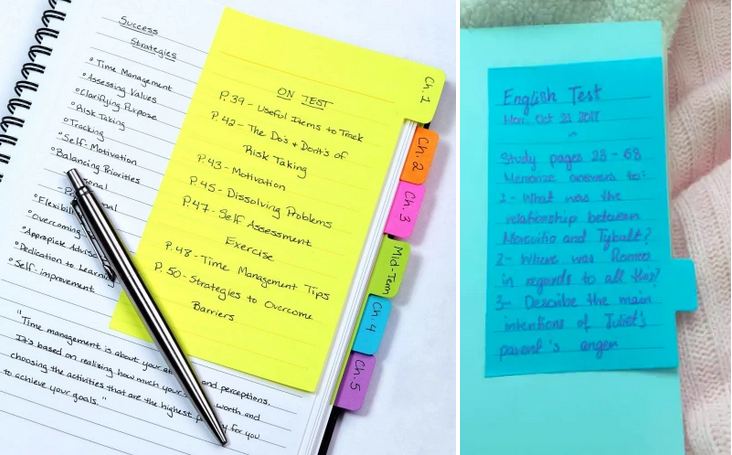 Success
Strategies
° Time Management
° Assessing Values
° Clarifying Purpose
° Risk Taking
° Tracking
° Self-Motivation
° Balancing Priorities
° Dedication to Learning
° Self-improvement
"Time management is about your and perceptions.
It's based on realizing how much your worth and
choosing the activities that are the highest for you
to achieve your goals."
ON TEST
P.39 - Useful Items to Track
P.42 - The Do's + Dont's of
Risk Taking
P.43 - Motivation
P.45 - Dissolving Problems
P.47 - Self Assessment
Exercise
P.48 - Time Management Tips
P.50 - Strategies to Overcome
Barriers
Ch. 1
Ch. 2
Ch. 3
Mid-Term
Ch. 4
Ch. 5
English Test
Mon, Oct 23 2017
Study pages 23 - 68
Memorize answers to:
1- What was the
relationship between
Mercutio and Tybalt?
2- Where was Romeo
in regards to all this?
3- Describe the main
intentions of Juliet's
parent's anger